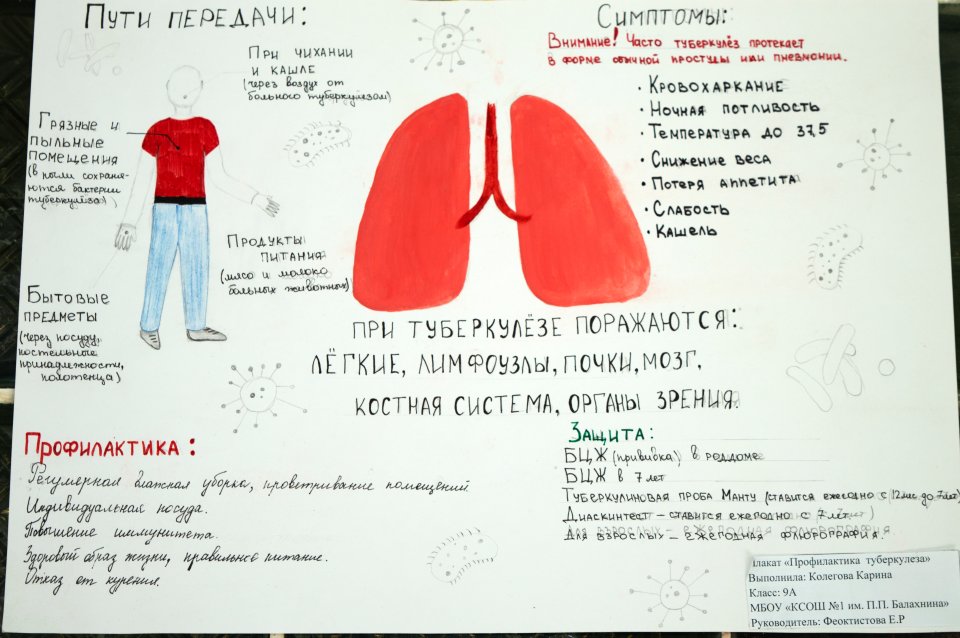 Пути передачи:
При чихании
и кашле
(через воздух от
больного туберкулезом)
Грязные и
пыльные
помещения
(в пыли сохраня-
ются бактерии
туберкулёза)
Продукты
питания
(мясо и молоко
больных животных)
Бытовые
предметы
(через посуду,
постельные
принадлежности,
полотенца)
Симптомы:
Внимание! Часто туберкулёз протекает
в форме обычной простуды или пневмонии.
· Кровохаркание
· Ночная потливость
· Температура до 37,5
· Снижение веса
· Потеря аппетита
· Слабость
· Кашель
При туберкулёзе поражаются:
лёгкие, лимфоузлы, почки, мозг,
костная система, органы зрения.
Профилактика:
Регулярная влажная уборка, проветривание помещений
Индивидуальная посуда.
Повышение иммунитета.
Здоровый образ жизни, правильное питание.
Отказ от курения.
Защита:
БЦЖ (прививка) в роддоме
БЦЖ в 7 лет
Туберкулиновая проба Манту (ставится ежегодно с 12 мес. до 7 лет)
Диаскинтест – ставится ежегодно с 7 лет
Для взрослых – ежегодная флюрография.
лакат «Профилактика туберкулеза»
Выполнила: Колегова Карина
Класс: 9А
МБОУ «КСОШ №1 им. П.П. Балахнина»
Руководитель: Феоктистова Е.Р